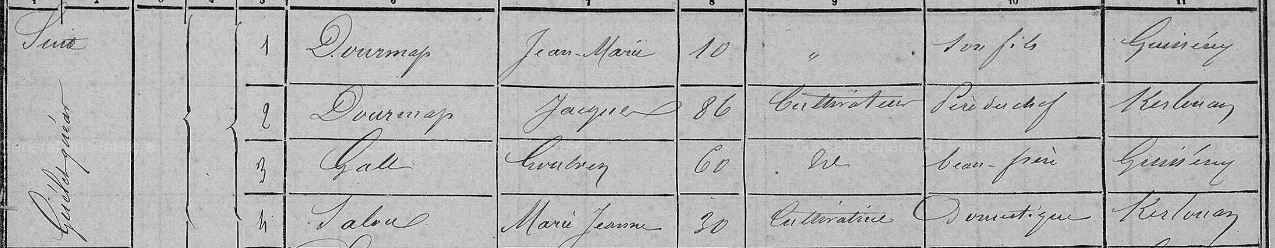 1 2 3 4 5 6 7 8 9 10 11
Suite 1 Dourmap Jean-Marie 10 " son fils Guissény
2 Dourmap Jacques 86 Cultivateur Père du chef Kerlouan
3 Gall Goulven 60 id beau-frère Guissény
4 Salou Marie Jeanne 30 Cultivatrice Domestique Kerlouan